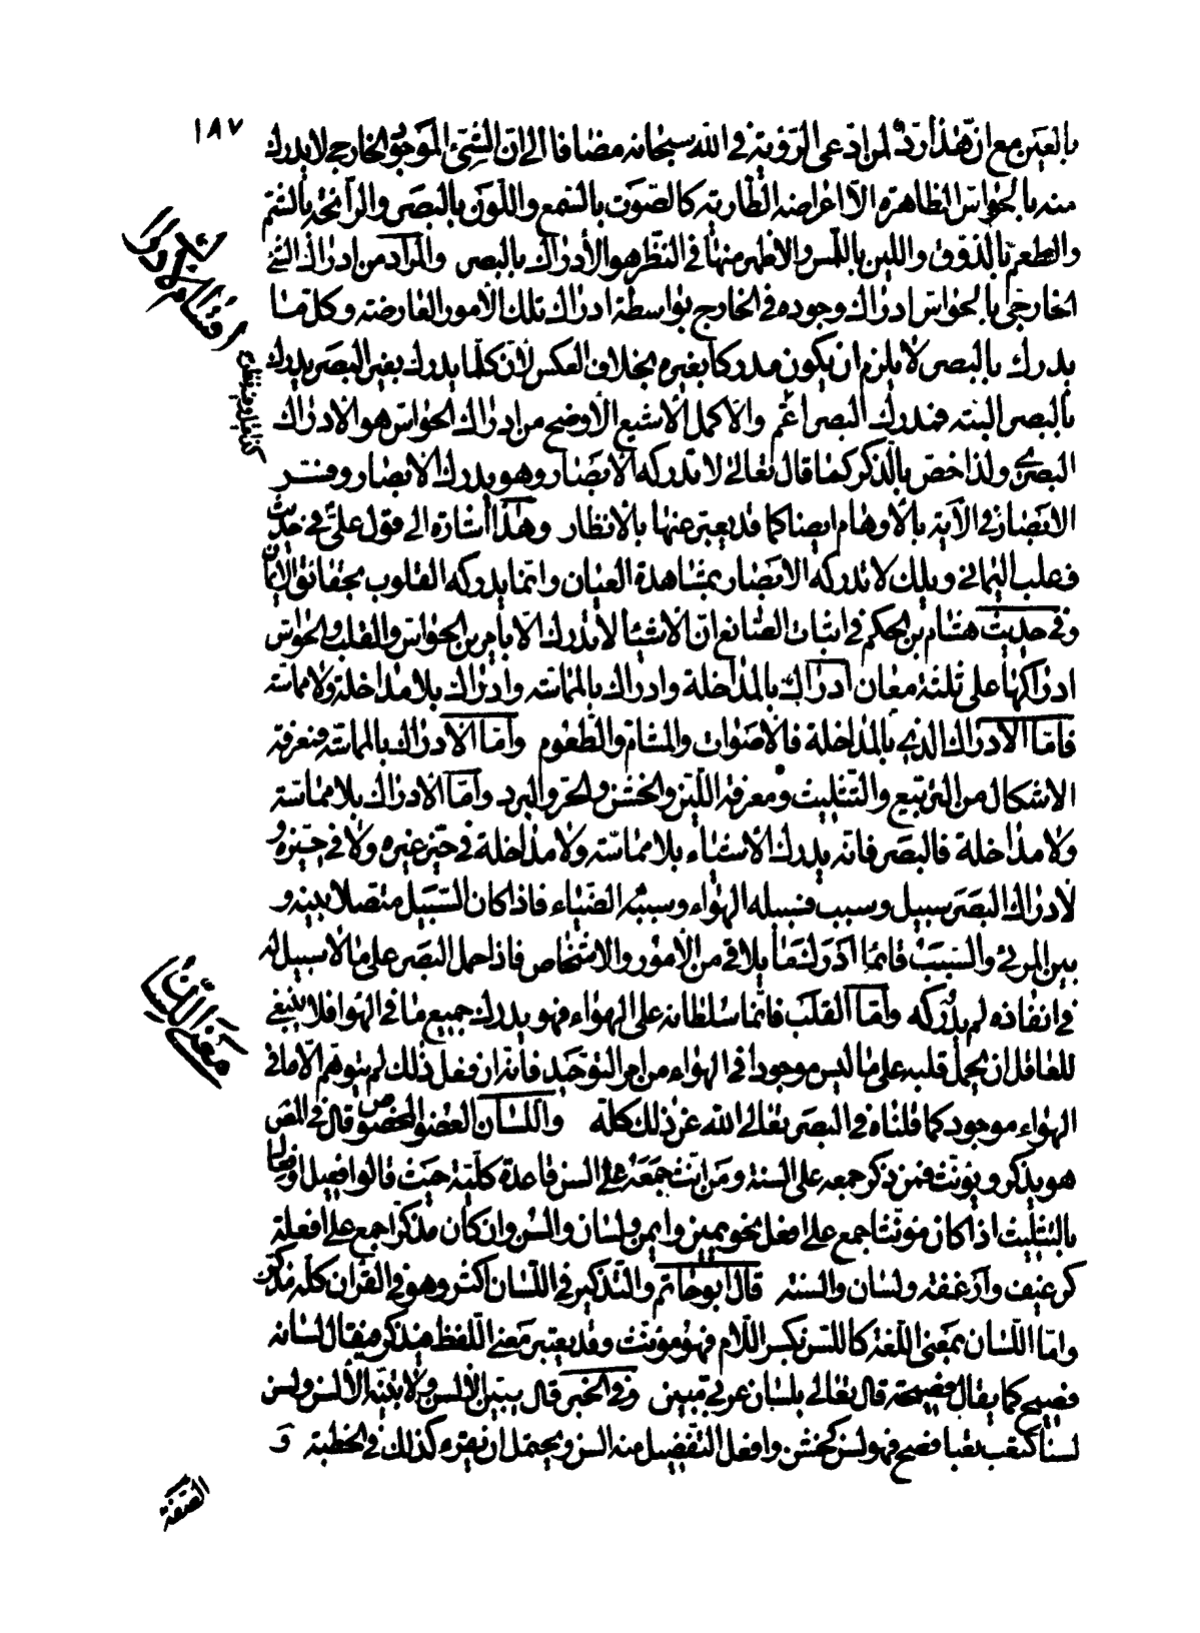 ١٨٧
بالعين مع ان هذا رد لمن ادعى الرؤية فى الله سبحانه مضافا الى ان الشئ الموجود الخارجى لا يدرك
منه بالحواس الظاهرة الا اعراضه الطارية كالصوت بالسمع واللون بالبصر والرائحة بالشم
والطعم بالذوق واللين باللمس والاظهر منها فى النظر هو الادراك بالبصر والمراد من ادراك الشئ
الخارجى بالحواس ادراك وجوده فى الخارج بواسطة ادراك تلك الامور العارضة وكل ما
يدرك بالبصر لا يلزم ان يكون مدركا بغيره بخلاف العكس لان كلما يدرك بغير البصر يدرك
بالبصر البتة فمدرك البصر اعم والاكمل الاشيع الاوضح من ادراك الحواس هو الادراك
البصرى ولذا خص بالذكر كما قال تعالى لا تدركه الابصار وهو يدرك الابصار وفسر
الابصار فى الآية بالاوهام ايضا كما قد يعبر عنها بالانظار وهذا اشارة الى قول على فى حديث
ذعلب اليمانى ويلك لا تدركه الابصار بمشاهدة العيان وانما يدركه القلوب بحقائق الايمان
وفى حديث هشام بن الحكم فى اثبات الصانع ان الاشياء لا تدرك الا بامرين الحواس والقلب والحواس
ادراكها على ثلثة معان ادراك بالمداخلة وادراك بالمماسة وادراك بلا مداخلة ولا مماسة
فاما الادراك الذى بالمداخلة فالاصوات والمشام والطعوم واما الادراك بالمماسة فمعرفة
الاشكال من التربيع والتثليث ومعرفة اللين والخشن والحر والبرد واما الادراك بلا مماسة
ولا مداخلة فالبصر فانه يدرك الاشياء بلا مماسة ولا مداخلة فى حيز غيره ولا فى حيزه و
لادراك البصر سبيل وسبب فسبيله الهواء وسببه الضياء فاذا كان السبيل متصلا بينه و
بين المرئى والسبب قائما ادرك ما يلاقى من الامور والاشخاص فاذا حمل البصر على ما لا سبيل له
فى انفاذه لم يدركه واما القلب فانما سلطانه على الهواء فهو يدرك جميع ما فى الهوا فلا ينبغى
للعاقل ان يحمل قلبه على ما ليس موجودا فى الهواء من امر التوحيد فانه ان فعل ذلك لم يتوهم الا ما فى
الهواء موجود كما قلناه فى البصر تعالى الله عن ذلك كله واللسان العضو المخصوص قال فى المص
هو يذكر ويؤنث فمن ذكر جمعه على السنة ومن انث جمعه على السن قاعدة كلية حيث قالوا فعيل او فعال
بالتثليث اذا كان مؤنثا جمع على افعل نحو يمين وايمن ولسان والسن وان كان مذكرا جمع على افعلة
كرغيف وارغفة ولسان والسنة قال ابو حاتم والتذكير فى اللسان اكثر وهو فى القران كله مذكر
واما اللسان بمعنى اللغة كاللسن بكسر اللام فهو مؤنث وقد يعتبر معنى اللفظ فيذكر فيقال لسانه
فصيح كما يقال فصيحة قال تعالى بلسان عربى مبين وفى الخبر قال يبين الالسن ولا تبينه الالسن ولسن
لسنا كتعب تعبا فصح فهو لسن كخشن وافعل التفضيل منه السن ويحتمل ان يقرء كذلك فى الخطبة و
الصفة
اقسام الادراك
معنى اللسان